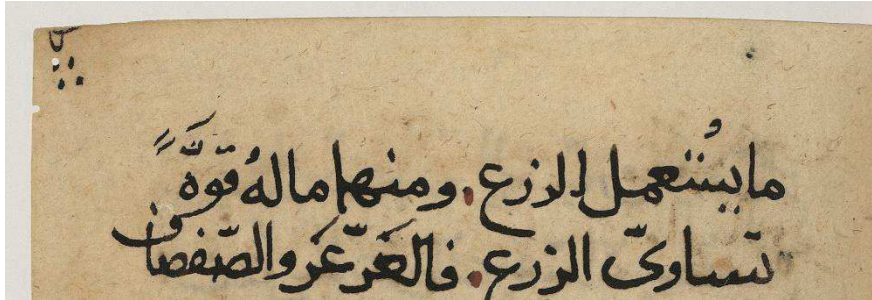 ما يُستعمل الزرع. ومنها ما لهُ قوّةً
تساوىّ الزرع. فالعَرّعَر والصّفصاف